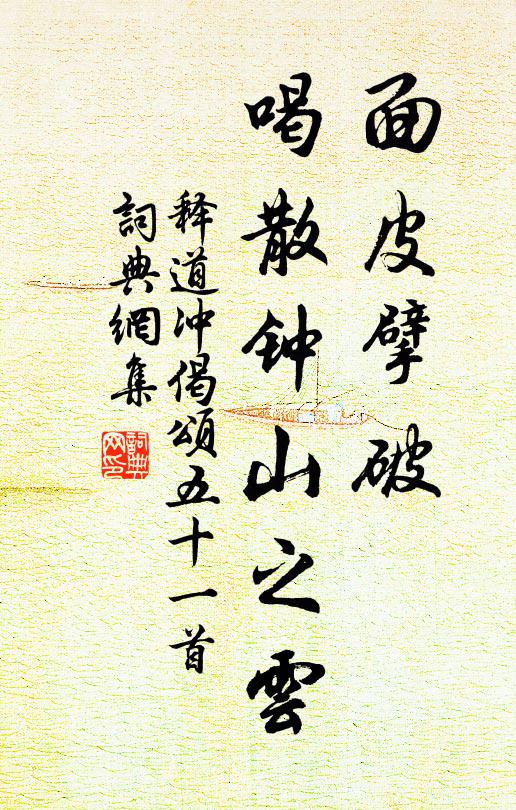 面皮擘破
喝散钟山之雲
释道冲偈頌五十一首
詞典網集
詞典
网印